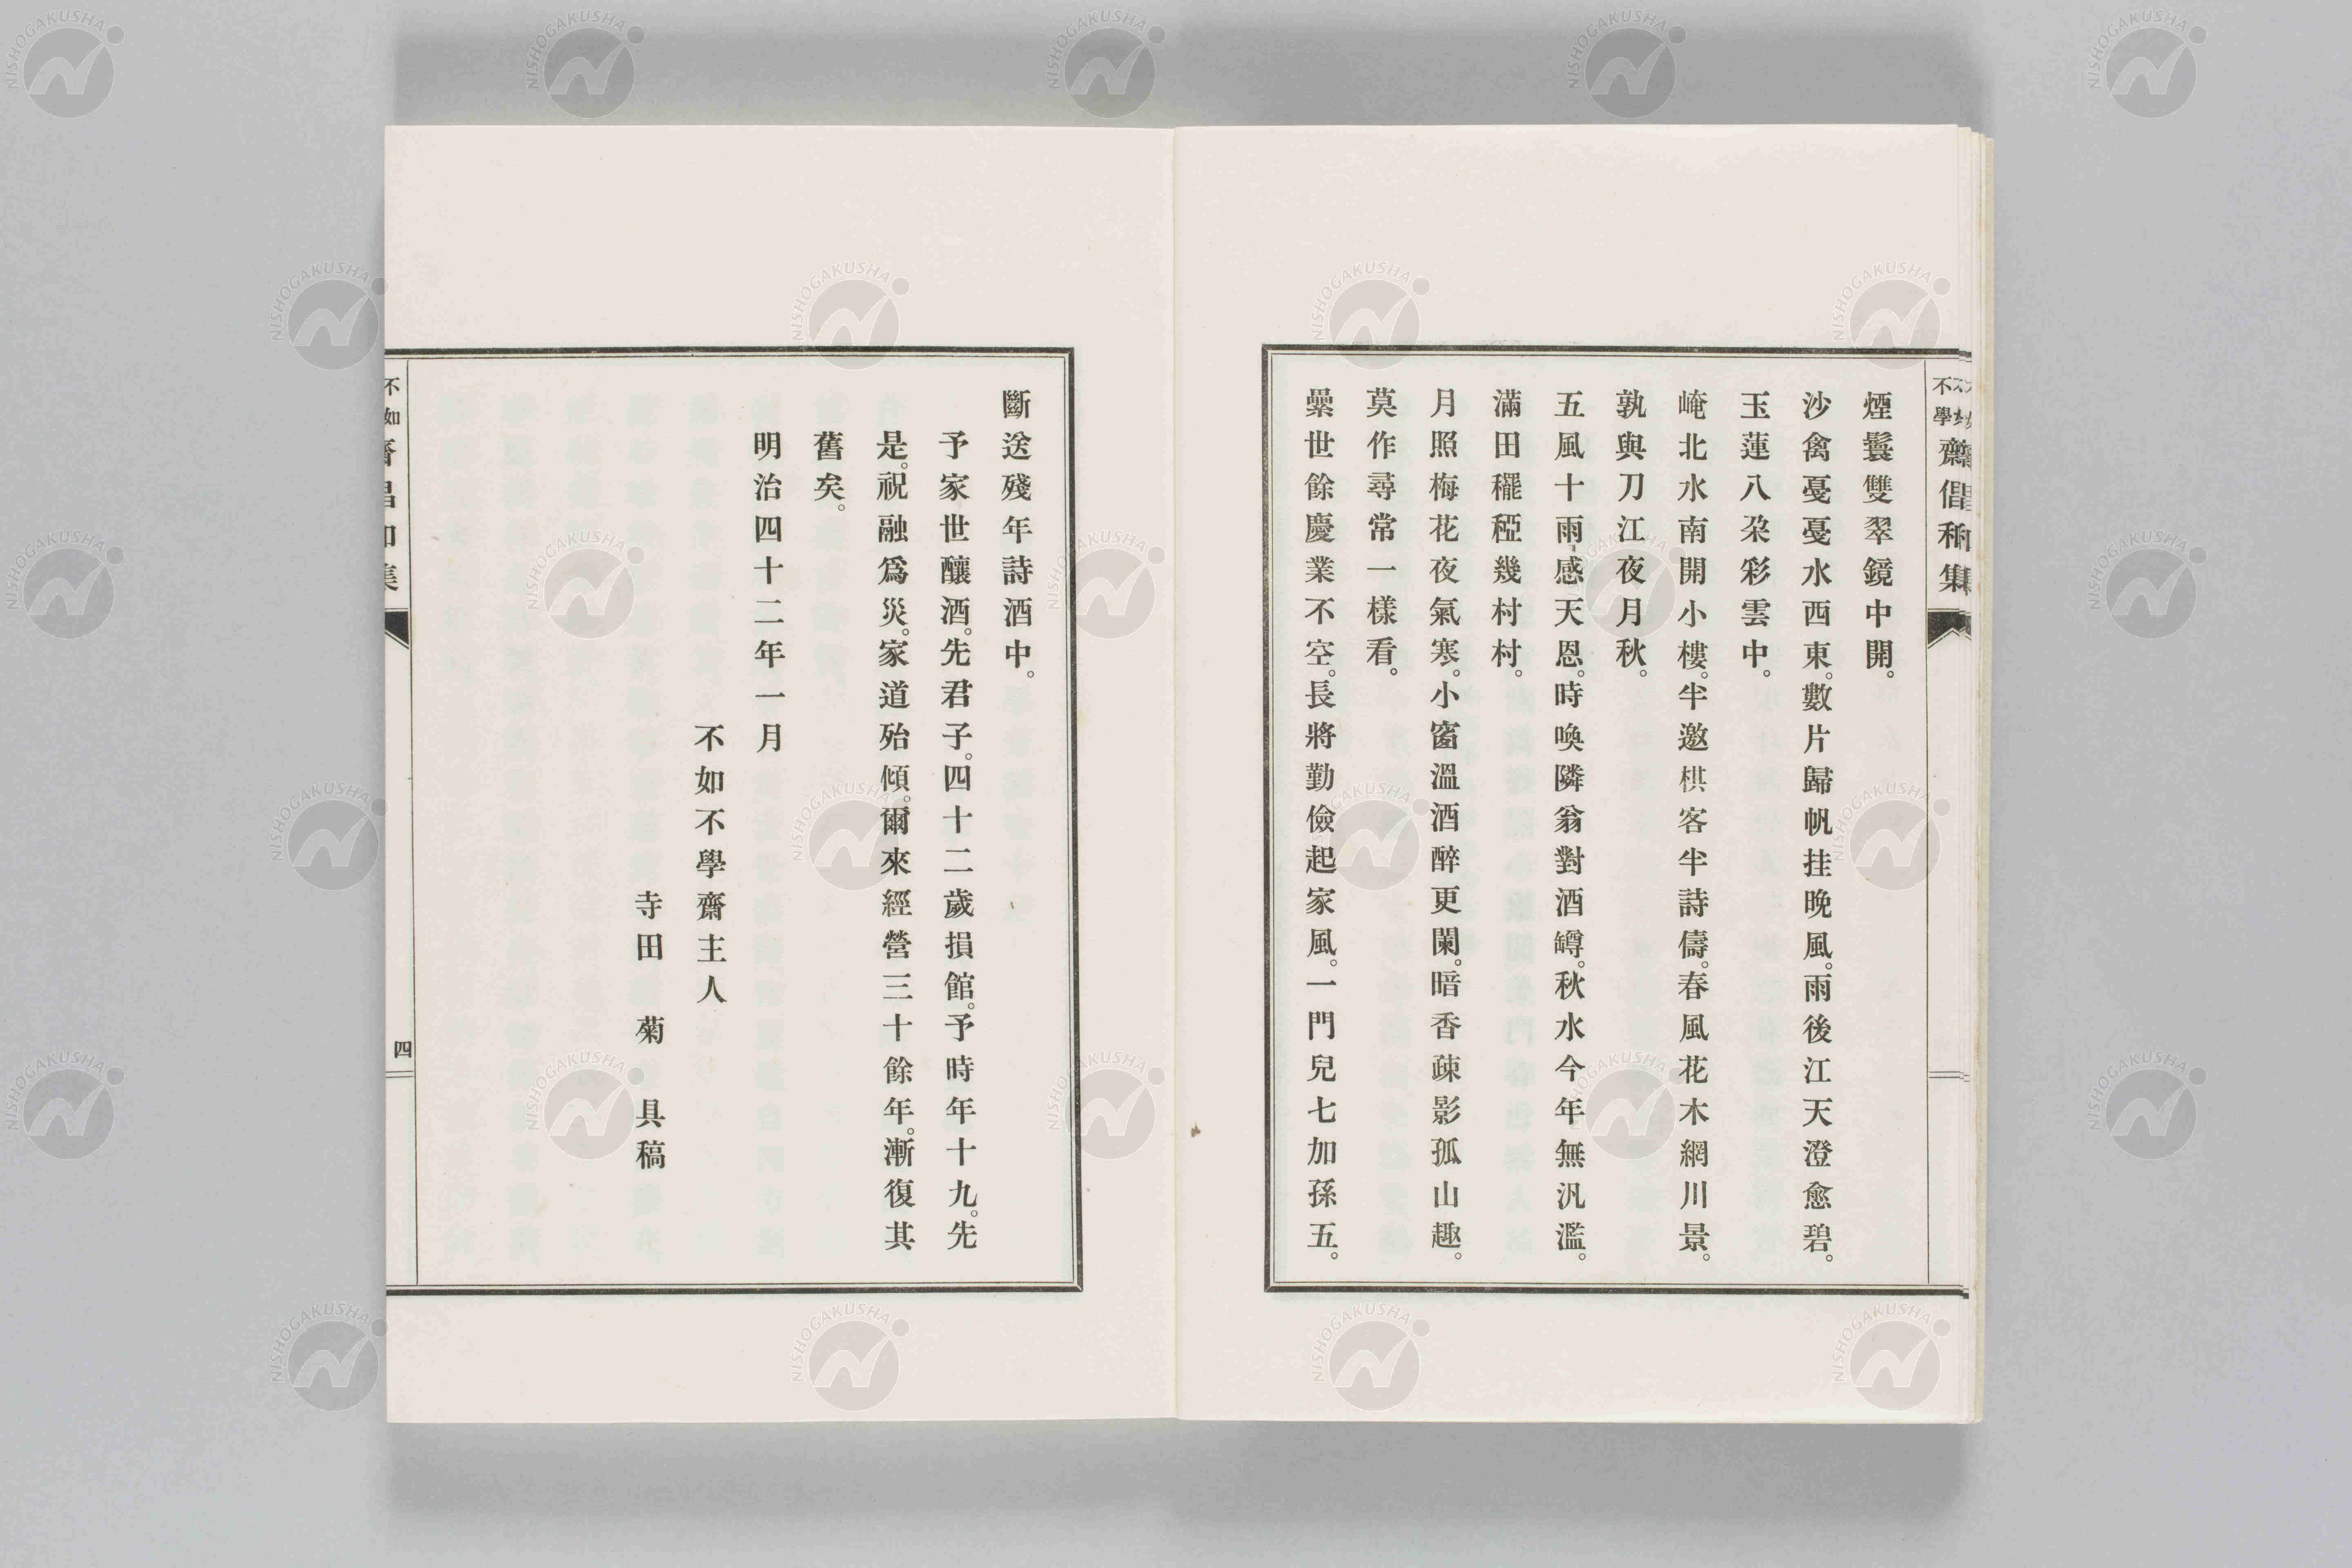 煙鬟雙翠鏡中開。
沙禽戞戞水西東。數片歸帆挂晚風。雨後江天澄愈碧。
玉蓮八朶彩雲中。
崦北水南開小樓。半邀棋客半詩儔。春風花木網川景。
孰與刀江夜月秋。
五風十雨感天恩。時喚隣翁對酒罇。秋水今年無汎濫。
滿田䆉稏幾村村。
月照梅花夜氣寒。小窗溫酒醉更闌。暗香疎影孤山趣。
莫作尋常一樣看。
纍世餘慶業不空。長將勤儉起家風。一門兒七加孫五。
斷送殘年詩酒中。
予家世釀酒。先君子。四十二歲損館。予時年十九。先
是。祝融爲災。家道殆傾。爾來經營三十餘年。漸復其
舊矣。
明治四十二年一月
不如不學齋主人
寺田菊具稿
四
NISHOGAKUSHA